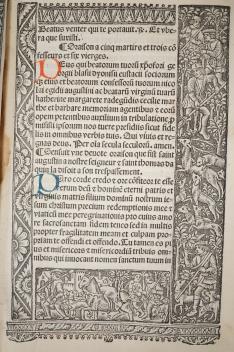 Beatus venter qui te portauit. Et vbe
ra que suxisti.
Oraison a cinq martirs et trois cõ
fesseurs et six vierges.
Deus qui beatorum tuorũ xp̃ofori ge
orgii blasii dyonisii eustacii sociorum
et beatorum confessorũ tuorum nico
lai egidii augustini ac beatarũ virginũ
katherine margarete radegũdis cecilie mar
the et barbare memoriam agentibus et eorũ
opem potentibus auxilium in tribulatione p
misisti
lis in omnibus verbis tuis. Qui viuis et re
gnas deus. Per oĩa secula seculorũ. amen.
Sensuit vne deuote oraison que fist saint
augustin a nostre seigneur et saint thomas da
quin la disoit a son trespassement.
corde credo et ore cõfiteor te esse
verum deũ et hominẽ eterni patris et
virginis matris filium dominũ nostrum ie
sum christum precium redemptionis mee et
viaticũ mee peregrinationis pro cuius amo
re sacrosanctam fidem teneo sed in multis
propter fragilitatem meam et culpam pro
priam te offendi et offendo. Tu tamen es pi
us et misericors et misericordiã tribuis om
nibus qui inuocant nomen sanctum tuum in